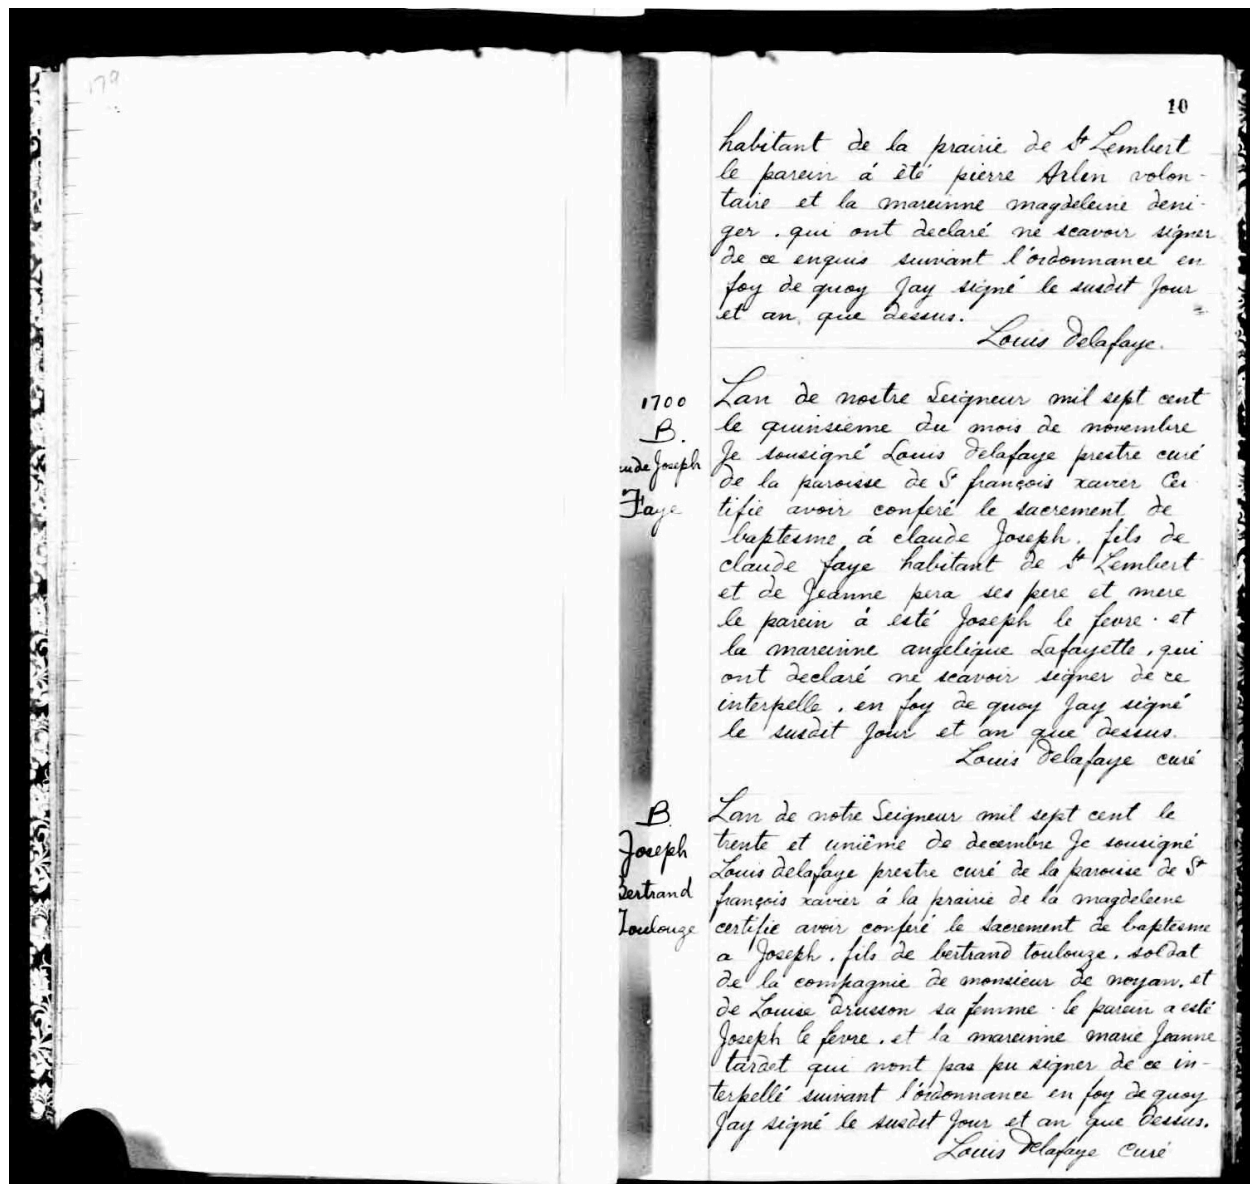 179
10
habitant de la prairie de St Lembert
le parein á été pierre Arlen volon-
taire et la mareinne magdeleine deni-
ger . qui ont declaré ne scavoir signer
de ce enquis suivant l'ordonnance en
foy de quoy Jay signé le susdit Jour
et an que dessus.
Louis Delafaye.
1700
B.
ude Joseph
Faye
Lan de nostre Seigneur mil sept cent
le quinsieme du mois de novembre
Je sousigné Louis Delafaye prestre curé
de la paroisse de St françois xavier Cer
tifie avoir conferé le sacrement de
baptesme á claude Joseph . fils de
claude faye habitant de St Lembert
et de Jeanne pera ses pere et mere
le parein á esté Joseph le fevre . et
la mareinne angelique Lafayette , qui
ont declaré ne scavoir signer de ce
interpelle . en foy de quoy Jay signé
le susdit Jour et an que dessus.
Louis Delafaye curé
B.
Joseph
Bertrand
Toulouze
Lan de notre Seigneur mil sept cent le
trente et uniême de decembre Je sousigné
Louis delafaye prestre curé de la paroisse de St
françois xavier á la prairie de la magdeleine
certifie avoir conferé le sacrement de baptesme
a Joseph . fils de bertrand toulouze . soldat
de la compagnie de monsieur de noyan . et
de Louise drusson sa femme . le parein a esté
Joseph le fevre . et la mareinne marie Jeanne
tardet qui nont pas pu signer de ce in-
terpellé suivant l'ordonnance en foy de quoy
Jay signé le susdit Jour et an que dessus.
Louis Delafaye Curé